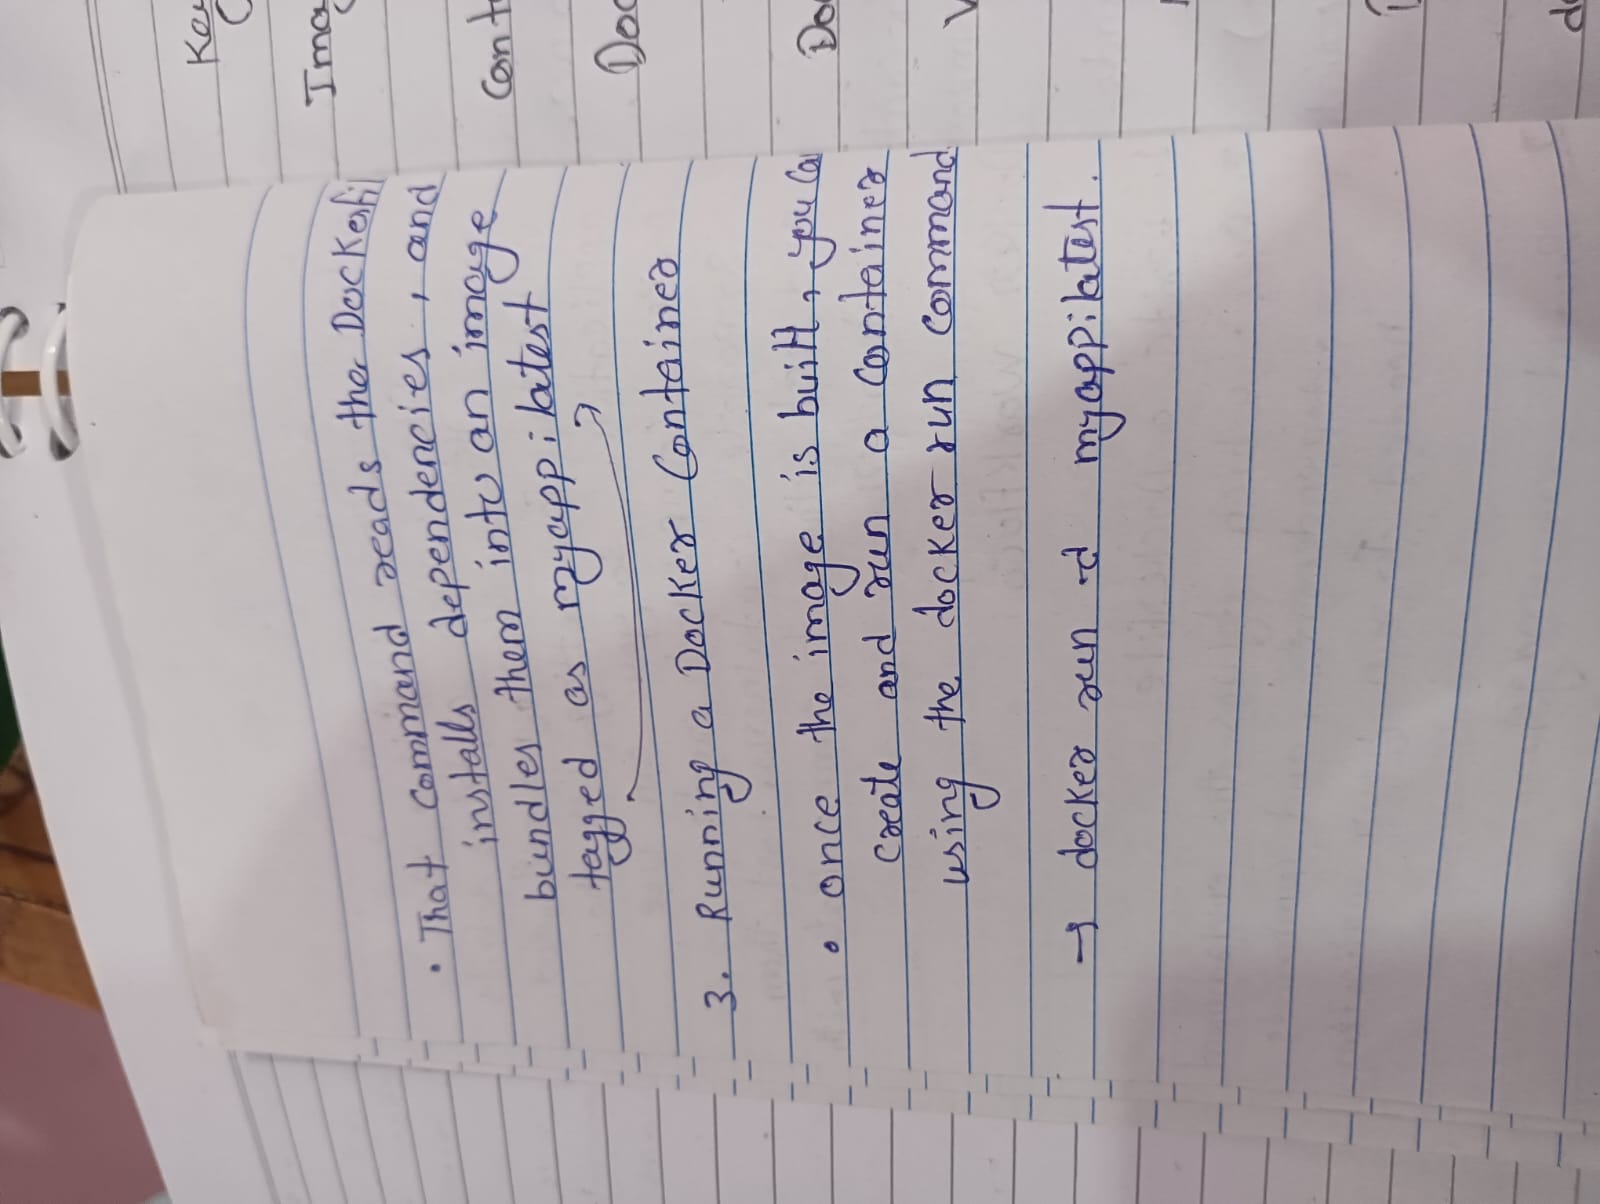 • That command reads the Dockerfil
installs dependencies, and
bundles them into an image
tagged as myapp:latest
3. Running a Docker Container
• once the image is built, you ca
create and run a container
using the docker run command
→ docker run -d myapp:latest.